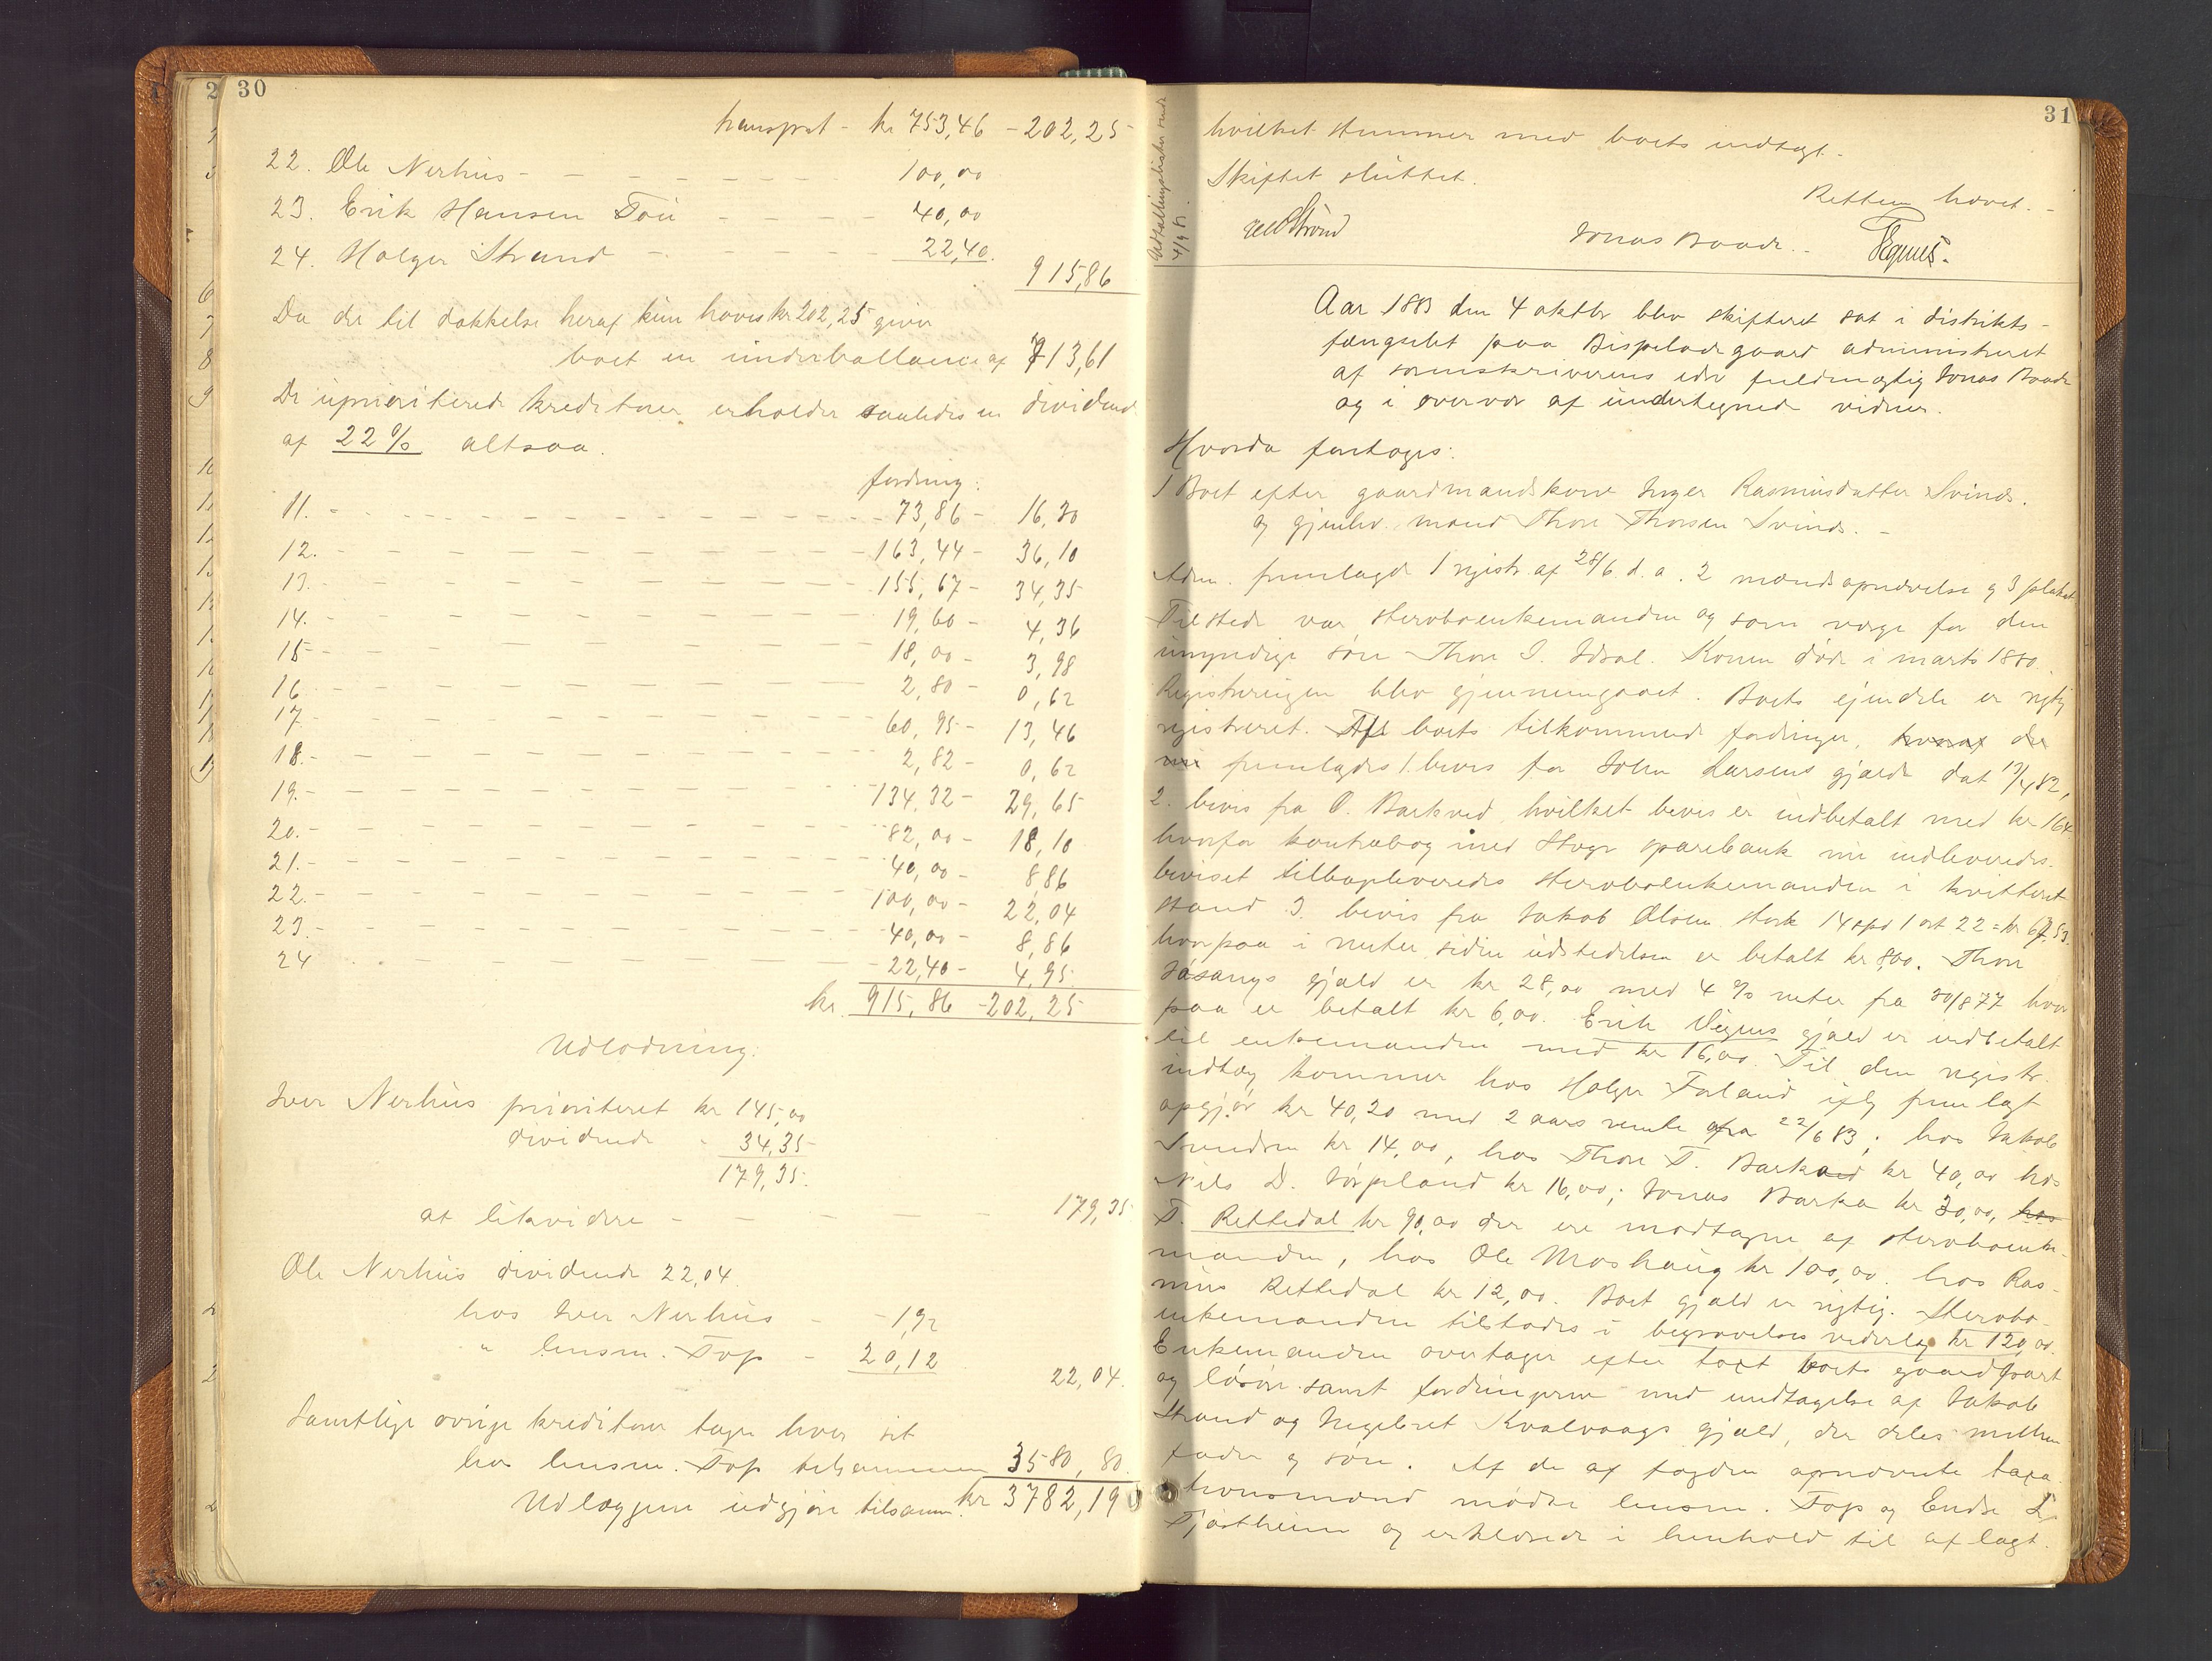 30
transprt - kr 753,46 - 202,25
22. Ole Nerhus - 100,00
23. Erik Hansen Tou - 40,00
24. Holger Strand - 22,40.
915,86
Da der til dækkelse heraf kun haves kr 202,25 giver
boet en underballance af 713,61
De uprioriterede kreditorer erholder saaledes en dividende
af 22 % altsaa.
fordring:
11. - 73,86 - 16,30
12. - 163,44 - 36,10
13. - 155,67 - 34,35
14. - 19,60 - 4,36
15 - 18,00 - 3,98
16 - 2,80 - 0,62
17 - 60,95 - 13,46
18. - 2,82 - 0,62
19. - 134,32 - 29,65
20. - 82,00 - 18,10
21. - 40,00 - 8,86
22. - 100,00 - 22,04
23. - 40,00 - 8,86
24 - 22,40 - 4,95
kr. 915,86 - 202,25
Udlodning:
Iver Nerhus prioriteret kr 145,00
dividende - 34,35
179,35.
at likvidere - 179,35
Ole Nerhus dividende 22,04.
hos Iver Nerhus - 1,92
" lensm. Top - 20,12
22,04.
Samtlige øvrige kreditorer tager hver sit
hos lensm. Top tilsammen 3580,80.
Udlæggene udgjøre tilsamm. kr 3782,19
31
hvilket stemmer med boets indtægt. -
Skiftet sluttet.
Retten hævet. -
Jonas Baade. -
Aar 1883 den 4 oktbr blev skifteret sat i distrikts-
fængslet paa Bispeladegaard administreret
af sorenskriverens edsv fuldmægtig Jonas Baade
og i overvær af undertegnede vidner.
Hvorda foretoges:
1 Boet efter gaardmandskone Inger Rasmusdatter Svines.
og gjenlev. mand Thore Thorsen Svines. -
Adm. fremlagde 1 registr. af 28/6 d. a. 2 mændsopnævelse og 3 plakat
Tilstede var sterboenkemanden og som værge for den
umyndige søn Thore I. Idsal. Konen døde i marts 1880.
Registreringen blev gjennemgaaet. Boets ejendele er rigtig
registreret. Af boets tilkommende fordringer, hvoraf der
nu fremlagdes 1. bevis for John Larsens gjæld dat
2. bevis fra O. Barkved, hvilket bevis er indbetalt med kr 164
hvorfor kontrabog med Stavgr sparebank nu indleveredes.
beviset tilbageleveredes sterboenkemanden i kvitteret
stand. 3. bevis fra Jakob Olsen stork 14 spd 1 ort 22 = kr
hvorpaa i renter siden udstedelsen er betalt kr 8,00. Thore
gjæld er kr 28,00 med 4 % renter fra 30/8 77 hvor
paa er betalt kr 6,00. Erik Vignes gjæld er indbetalt
til enkemanden med kr 16,00. Til den registr.
indtæg kommer hos Holger Forland iflg fremlagt
opgjør kr 40,20 med 2 aars rente fra 22/6 83; hos Jakob
kr 14,00, hos Thore T. Barkved kr 40,00 hos
Nils D. Jørpeland kr 16,00; Jonas Barka kr 30,00, hos
T. Rettedal kr 90,00 der ere modtagne af sterboenke-
manden, hos Ole Moshaug kr 100,00. hos Ras-
mus Rettedal kr 12,00. Boet gjæld er rigtig. Sterbo-
enkemanden tilstodes i begravelses vederlag kr 120,00.
Enkemanden overtager efter taxt boets gaardpart
og løsøre samt fordringerne med undtagelse af Jakob
Strand og Ingebret Kvalvaags gjæld, der deles mellem
fader og søn. Af de af fogden opnævnte taxa-
tionsmænd mødte lensm. Top og Endre L
Tjøstheim og erklærede i henhold til aflagt